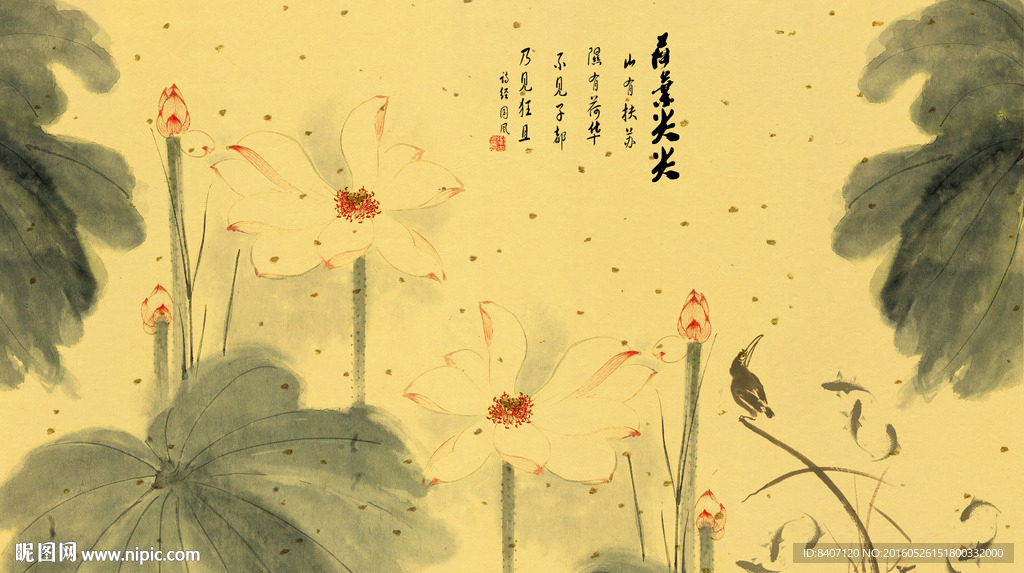 荷葉尖尖
山有扶苏
隰有荷华
不见子都
乃见狂且
诗经国风
昵图网 www.nipic.com
ID:8407120 NO:20160526151800332000